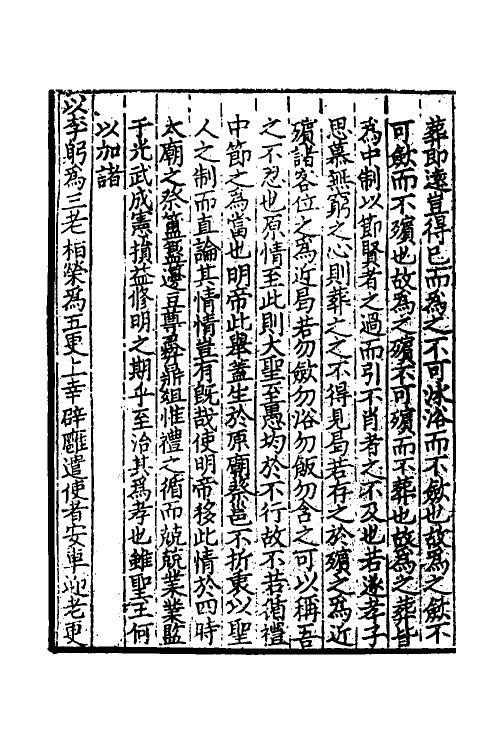 葬即遠豈得已而為之不可沐浴而不斂也故為之斂不
可斂而不殯也故為之殯不可殯而不葬也故為之葬皆
為中制以節賢者之過而引不肖者之不及也若遂孝子
思慕無窮之心則葬之之不得見曷若存之於殯之為近
殯諸客位之為近曷若勿斂勿浴勿飯勿含之可以稱吾
之不忍也原情至此則大聖至愚均於不行故不若循禮
中節之為當也明帝此舉蓋生於原廟蔡邕不折衷以聖
人之制而直論其情情豈有既哉使明帝移此情於四時
太廟之祭簠簋籩豆尊彝鼎俎惟禮之循而兢兢業業監
于光武成憲損益修明之期乎至治其為孝也雖聖王何
以加諸
以李躬為三老桓榮為五更上幸辟雝遣使者安車迎老更